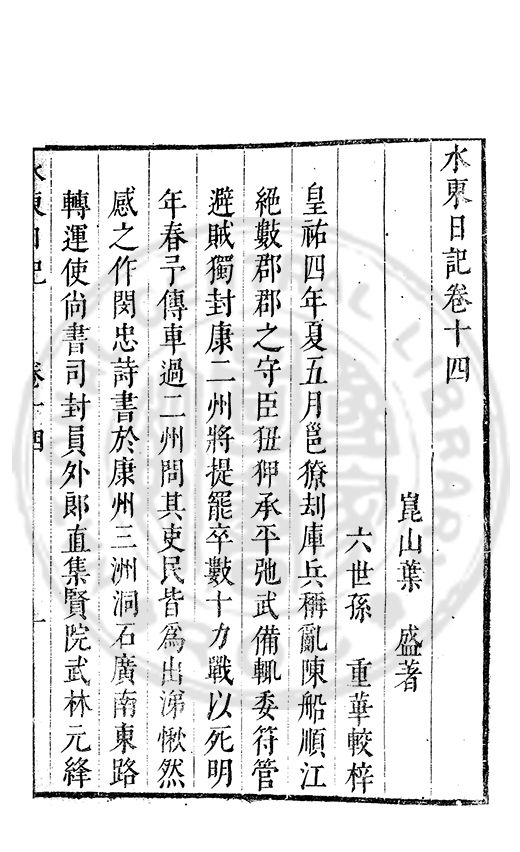 水東日記卷十四
崑山葉 盛著
六世孫 重華較梓
皇祐四年夏五月邕獠刼庫兵稱亂陳船順江
絕數郡郡之守臣狃狎承平弛武備輒委符管
避賊獨封康二州將提罷卒數十力戰以死明
年春予傳車過二州問其吏民皆爲出涕愀然
感之作閔忠詩書於康州三洲洞石廣南東路
轉運使尙書司封員外郎直集賢院武林元絳
水東日記 卷十四 一